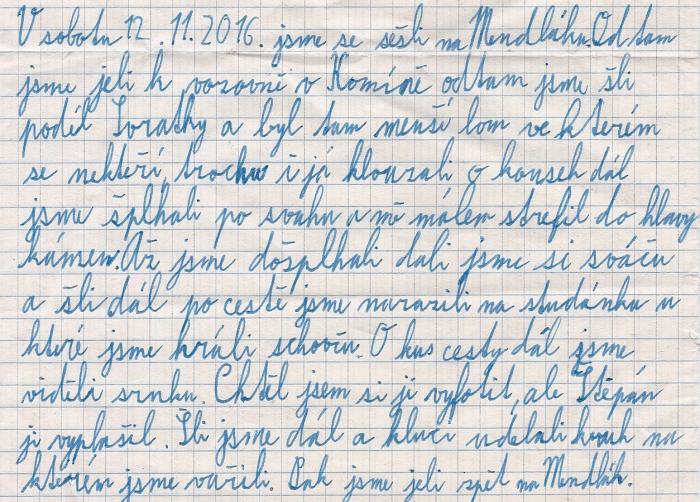 V sobotu 12.11.2016. jsme se sešli na Mendláku. Od tam
jsme jeli k vozovně v Komíně od tam jsme šli
podél Svratky a byl tam menší lom ve kterém
se nekteří, trochu i já klouzali o kousek dál
jsme šplhali po svahu a mě málem strefil do hlavy
kámen. Až jsme došplhali dali jsme si sváču
a šli dál po cestě jsme narazili na studánku u
které jsme hráli schovču. O kus cesty dál jsme
viděli srnku. Chtěl jsem si ji vyfotit, ale Štěpán
ji vyplašil. Šli jsme dál a kluci udělali kruh na
kterém jsme vařili. Pak jsme jeli zpět na Mendlák.